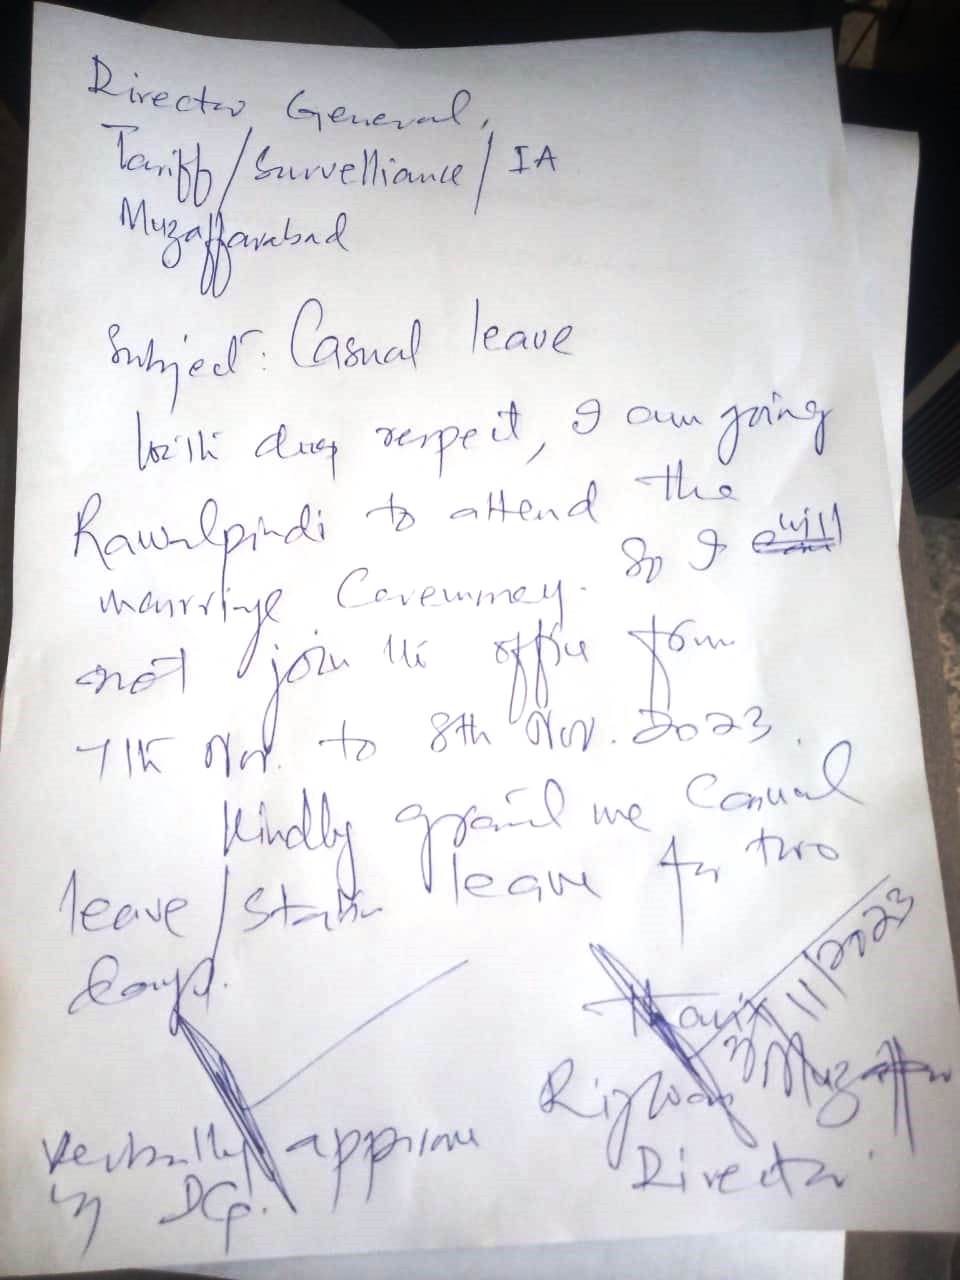 Director General,
Tariff/Survelliance/IA
Muzaffarabad
Subject: Casual leave
With deep respect, I am going
Rawalpindi to attend the
marriye Ceremmey. So I will
not join the office from
7th Nov. to 8th Nov. 2023.
Kindly grant me Casual
leave/Station leave for two
days.
11/2023
Rizwan Muzaffar
Director
Verbally approve
by DG.